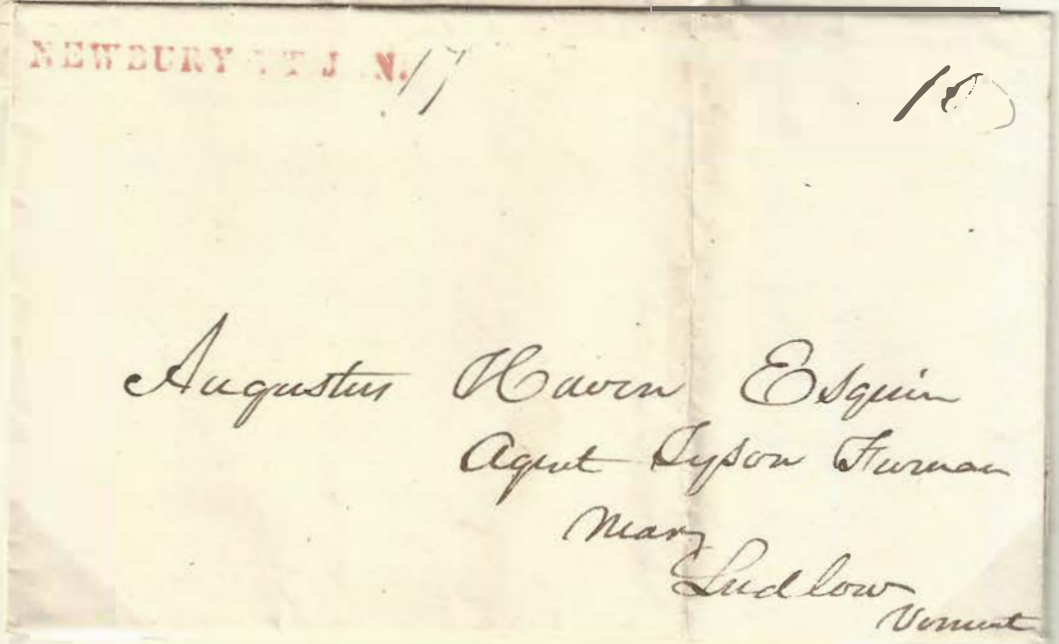 NEWBURY VT JAN. 17
10
Augustus Haven Esquire
Agent Tyson Furnace
Near
Ludlow
Vermont